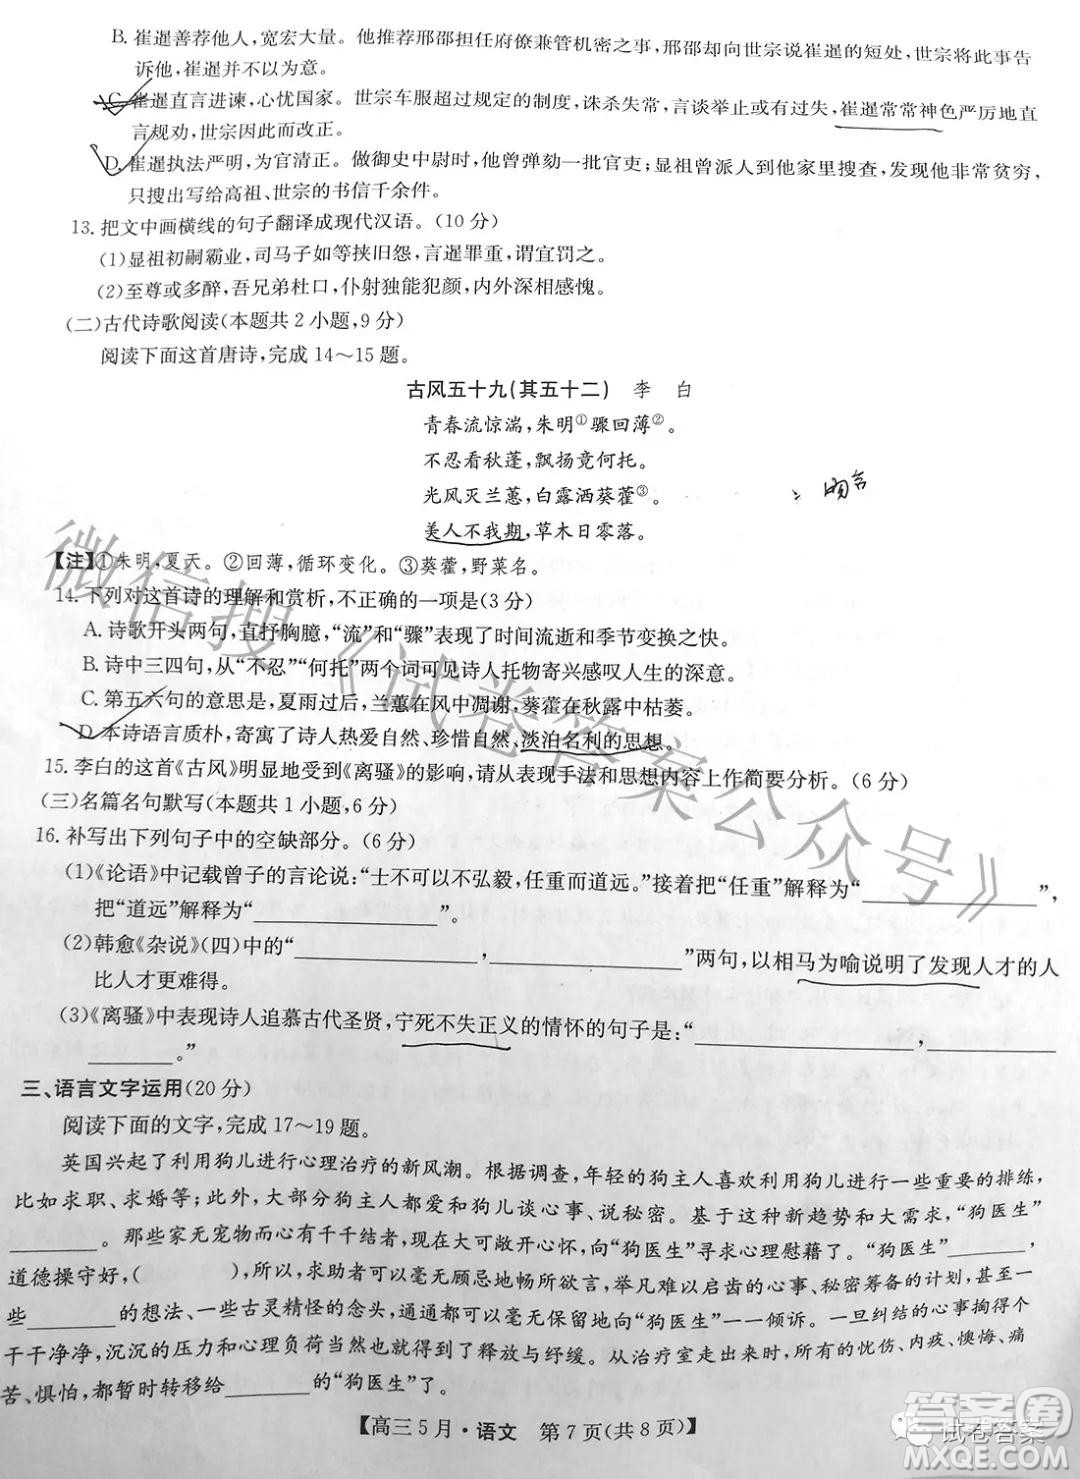 B. 崔暹善荐他人，宽宏大量。他推荐邢邵担任府僚兼管机密之事，邢邵却向世宗说崔暹的短处，世宗将此事告
诉他，崔暹并不以为意。
C. 崔暹直言进谏，心忧国家。世宗车服超过规定的制度，诛杀失常，言谈举止或有过失，崔暹常常神色严厉地直
言规劝，世宗因此而改正。
D. 崔暹执法严明，为官清正。做御史中尉时，他曾弹劾一批官吏；显祖曾派人到他家里搜查，发现他非常贫穷，
只搜出写给高祖、世宗的书信千余件。
13. 把文中画横线的句子翻译成现代汉语。(10 分)
(1)显祖初嗣霸业，司马子如等挟旧怨，言暹罪重，谓宜罚之。
(2)至尊或多醉，吾兄弟杜口，仆射独能犯颜，内外深相感愧。
(二)古代诗歌阅读(本题共 2 小题，9 分)
阅读下面这首唐诗，完成 14～15 题。
古风五十九(其五十二) 李 白
青春流惊湍，朱明①骤回薄②。
不忍看秋蓬，飘扬竟何托。
光风灭兰蕙，白露洒葵藿③。
美人不我期，草木日零落。
吻合
【注】①朱明，夏天。②回薄，循环变化。③葵藿，野菜名。
14. 下列对这首诗的理解和赏析，不正确的一项是(3 分)
A. 诗歌开头两句，直抒胸臆，“流”和“骤”表现了时间流逝和季节变换之快。
B. 诗中三四句，从“不忍”“何托”两个词可见诗人托物寄兴感叹人生的深意。
C. 第五六句的意思是，夏雨过后，兰蕙在风中凋谢，葵藿在秋露中枯萎。
D. 本诗语言质朴，寄寓了诗人热爱自然、珍惜自然、淡泊名利的思想。
15. 李白的这首《古风》明显地受到《离骚》的影响，请从表现手法和思想内容上作简要分析。(6 分)
(三)名篇名句默写(本题共 1 小题，6 分)
16. 补写出下列句子中的空缺部分。(6 分)
(1)《论语》中记载曾子的言论说：“士不可以不弘毅，任重而道远。”接着把“任重”解释为“________”，
把“道远”解释为“________”。
(2)韩愈《杂说》(四)中的“________，________”两句，以相马为喻说明了发现人才的人
比人才更难得。
(3)《离骚》中表现诗人追慕古代圣贤，宁死不失正义的情怀的句子是：“________，________
________。”
三、语言文字运用(20 分)
阅读下面的文字，完成 17～19 题。
英国兴起了利用狗儿进行心理治疗的新风潮。根据调查，年轻的狗主人喜欢利用狗儿进行一些重要的排练，
比如求职、求婚等；此外，大部分狗主人都爱和狗儿谈心事、说秘密。基于这种新趋势和大需求，“狗医生”
________。那些家无宠物而心有千千结的人，在此趋势之下，
道德操守好，(      )，所以，求助者可以毫无顾忌地畅所欲言，举凡难以启齿的心事、秘密筹备的计划，甚至一
些________的想法、一些古灵精怪的念头，通通都可以毫无保留地向“狗医生”倾诉。一旦纠结的心事掏得个
干干净净，沉沉的压力和心理负荷当然也就得到了释放与纾缓。从治疗室走出来时，所有的忧伤、内疚、懊悔、痛
苦、惧怕，都暂时转移给________的“狗医生”了。
【高三 5 月·语文 第 7 页(共 8 页)】
微信搜《试卷答案公众号》
试卷答案
答案圈
MXQE.COM